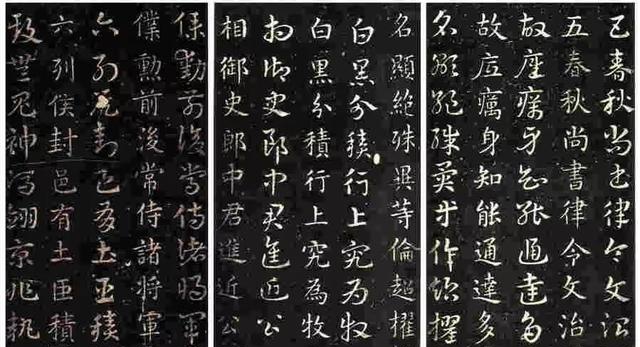 春秋尚書律令文治
五春秋尚書律令文治
故底癘身知能通達多
故底癘身知能通達多
名顯絕殊異等倫超擢
名顯絕殊異等倫超擢
白黑分積行上究為牧
白黑分積行上究為牧
相御史郎中君進近公
相御史郎中君進近公
僕勳前後常侍諸將軍
僕勳前後常侍諸將軍
六列侯封邑有土臣積
六列侯封邑有土臣積
致無鬼神馮翊京兆執